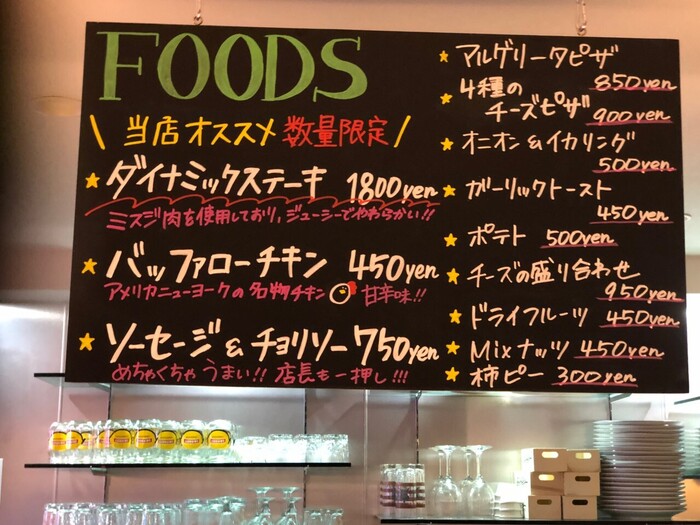 FOODS
\ 当店オススメ 数量限定 /
★ ダイナミックステーキ 1800yen
ミスジ肉を使用しており、ジューシーでやわらかい!!
★ バッファローチキン 450yen
アメリカニューヨークの名物チキン 甘辛味!!
★ ソーセージ & チョリソー 750yen
めちゃくちゃ うまい!! 店長も一押し!!!
★ アルゲリータピザ
850yen
★ 4種の
チーズピザ 900yen
★ オニオン & イカリング
500yen
★ ガーリックトースト
450yen
★ ポテト 500yen
★ チーズの盛り合わせ
950yen
★ ドライフルーツ 450yen
★ Mixナッツ 450yen
★ 柿ピー 300yen